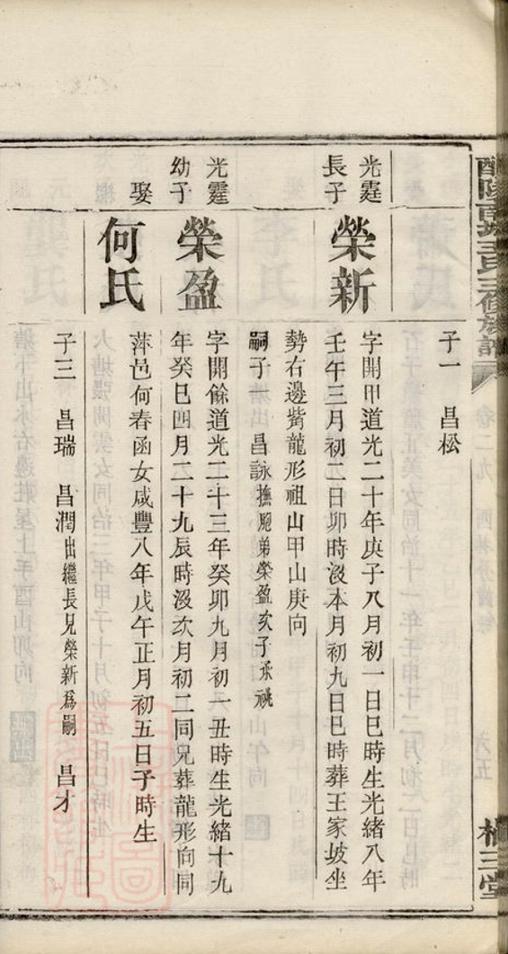 醴陵西城王氏三修族譜
槐三堂
子一　昌松
光霆長子
榮新
字開甲道光二十年庚子八月初一日巳時生光緒八年
壬午三月初二日卯時沒本月初九日巳時葬王家坡坐
勢右邊觜龍形祖山甲山庚向
嗣子一　昌詠撫胞弟榮盈次子承祧
光霆幼子
榮盈
字開餘道光二十三年癸卯九月初一丑時生光緒十九
年癸巳四月二十九辰時沒次月初二同兄葬龍形向同
娶
何氏
萍邑何春函女咸豐八年戊午正月初五日子時生
子三　昌瑞　昌潤出繼長兄榮新爲嗣　昌才